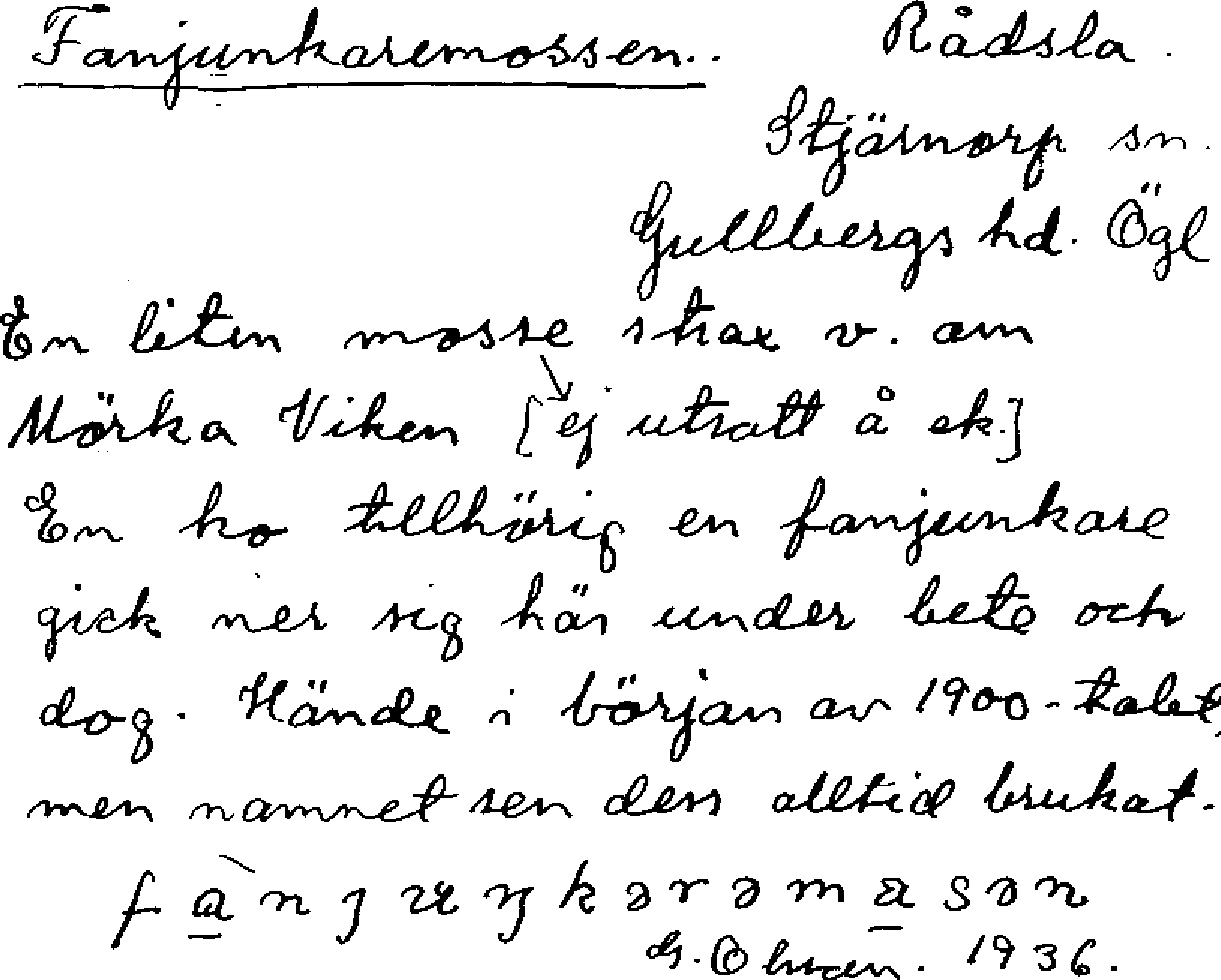 Fanjunkaremossen.. Rådsla.
Stjärnorp sn.
Gullbergs hd. Ögl
En liten mosse strax v. om
Mörka Viken [ej utsatt å ek.]
En ko tillhörig en fanjunkare
gick ner sig här under bete och
dog. Hände i början av 1900-talet,
men namnet sen dess alltid brukat.
G. 1936.